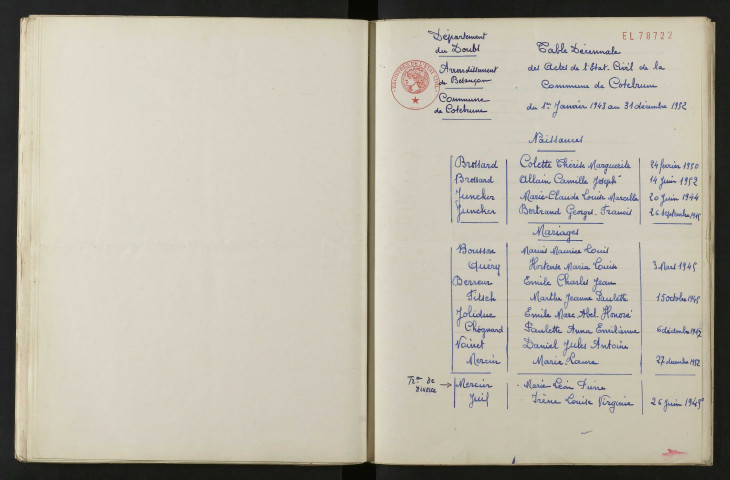 EL 78722
Département
du Doubs
Arrondissement
de Besançon
Commune
de Cotebrune
Table Décennale
des Actes de l'Etat. Civil de la
Commune de Cotebrune
du 1er Janvier 1943 au 31 décembre 1952
Naissances
Brossard Colette Thérèse Marguerite 24 février 1950
Brossard Allain Camille Joseph 14 Juin 1952
Juncker Marie-Claude Louise Marcelle 20 Juin 1944
Juncker Bertrand Georges. Francis 26 septembre
Mariages
Marius Maurice Louis
Hortense Maria Louise 3 Mars 1945
Emile Charles Jean
Marthe Jeanne Paulette 15 octobre
Emile Marc Abel. Honoré
Paulette Anna Emilienne 6 décembre
Daniel Jules Antoine
Mercier Marie Laure 27 décembre 1952
de divorce
Mercier Marie Léon
Irène Louise Virginie 26 Juin